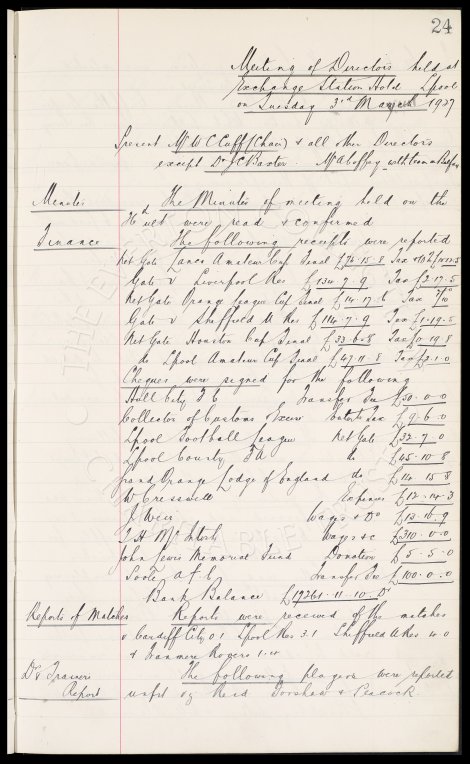 24
Meeting of Directors held at
Exchange Station Hotel Lpool
on Tuesday 3rd May 1927
Present Mr W C Cuff (Chair) & all other Directors
except Dr J C Baxter. Mr A Coffey with team at
Minutes The Minutes of meeting held on the
ult were read & confirmed
Finance The following receipts were reported
Net Gate Lancs Amateur Cup Final £74.15.8 Tax
Gate v Liverpool Res £134.7.9 Tax £2.17.5
Net Gate Orange League Cup Final £14.17.6 Tax
Gate v Sheffield U Res £114.7.9 Tax £1.19.5
Net Gate Houston Cup Final £33.6.8 Tax £0.19.8
do Lpool Amateur Cup Final £47.11.8 Tax £3.1.0
Cheques were signed for the following
Hull City F C Transfer Fee £50.0.0
Collector of Customs Excise Entert Tax £9.6.0
Lpool Football League Net Gate £32.7.0
Lpool County F A do £45.10.8
Grand Orange Lodge of England do £14.15.8
W Cresswell Expenses £12.14.3
J Weir Wages & Do £13.10.9
T H McIntosh Wages &c £310.0.0
John Lewis Memorial Fund Donation £5.5.0
Foote Transfer Fee £100.0.0
Bank Balance £19261.11.10 Dr
Reports of Matches Reports were received of the matches
v Cardiff City 0.1 Lpool Res 3.1 Sheffield U Res 4.0
& Tranmere Rogers 1.4
Dr Travers The following players were reported
Report unfit viz Reid Forshaw & Peacock